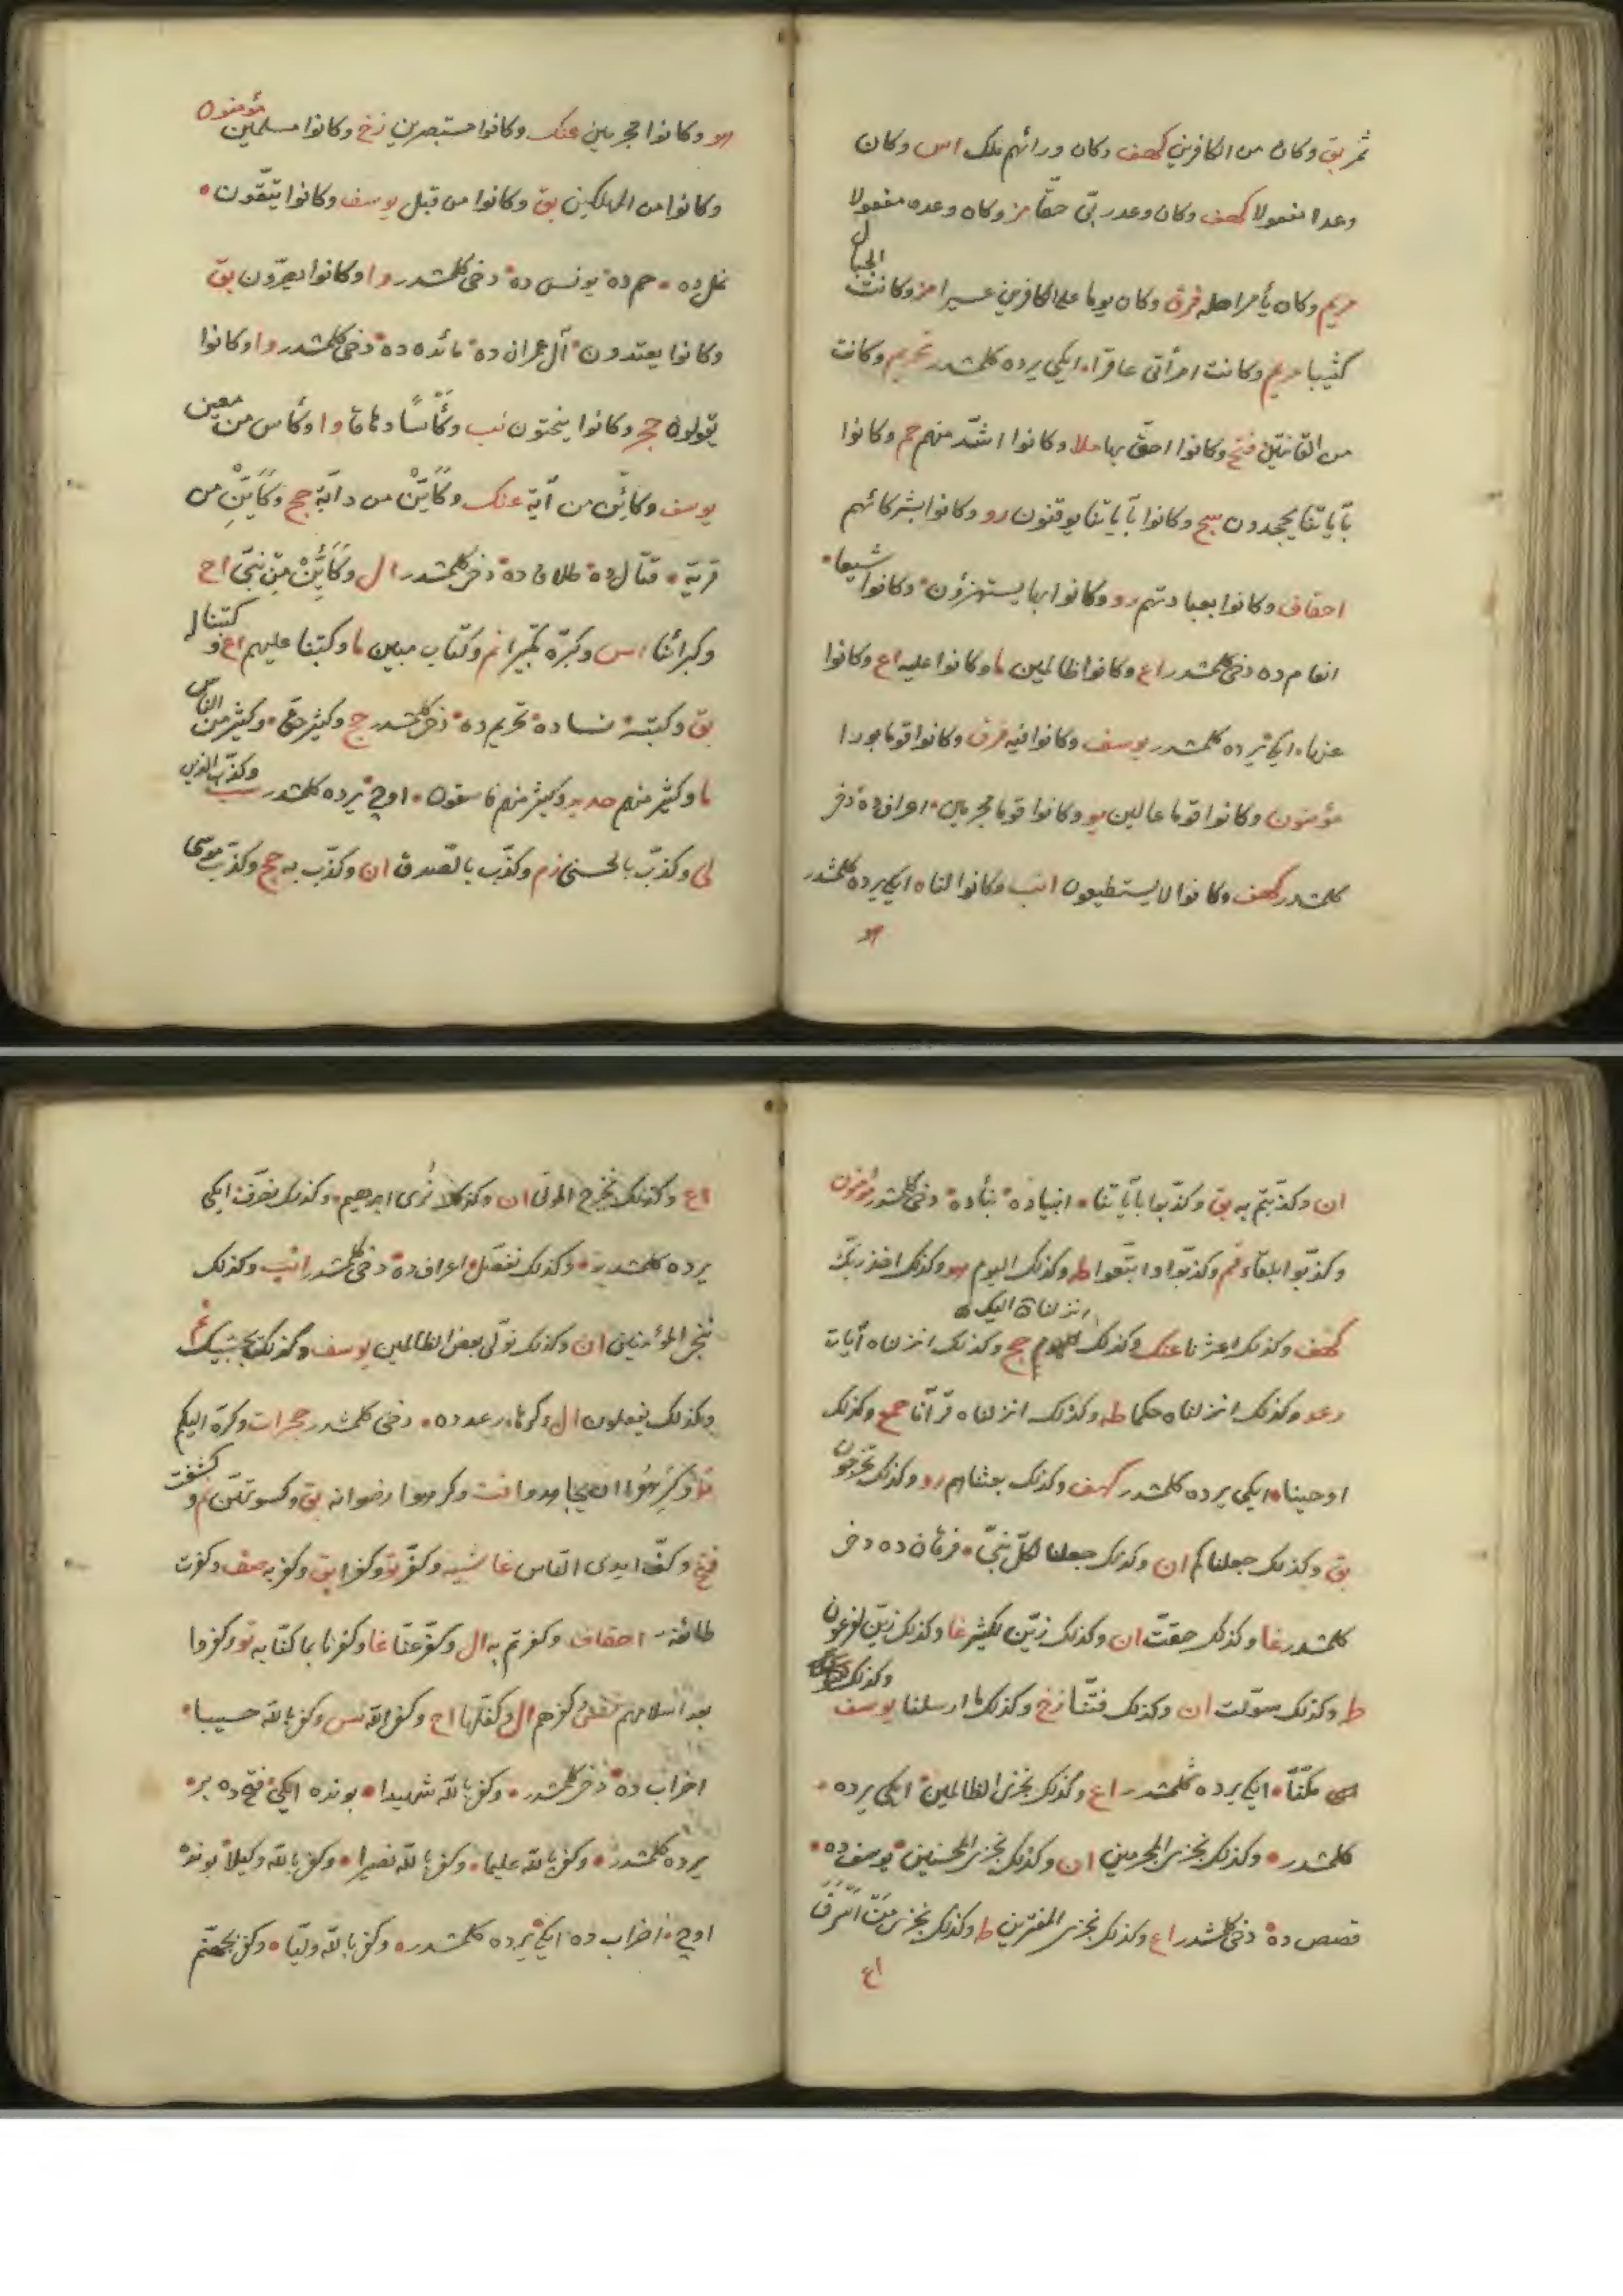 ثمر بق وكان من الكافرين كهف وكان ورائهم ملك اس وكان
وعدا مفعولا كهف وكان وعد ربّى حقّا مز وكان وعده مفعولا
الجبال
مريم وكان يأمر اهله فرق وكان يوما على الكافرين عسيرا مز وكانت
كثيبا مريم وكانت امرأتى عاقرا، ايكى يرده كلمشدر تحريم وكانت
من القانتين فتح وكانوا احقّ بها ملا وكانوا اشدّ منهم حم وكانوا
بآياتنا يجحدون سج وكانوا بآياتنا يوقنون رو وكانوا بشركائهم
احقاف وكانوا بعبادتهم رو وكانوا بها يستهزؤن وكانوا شيعا
انعام ده دخى كلمشدر اع وكانوا ظالمين ما وكانوا عليه اع وكانوا
عنها ايكى يرده كلمشدر يوسف وكانوا فيه فرق وكانوا قوما بورا
مؤمنون وكانوا قوما عالين يو وكانوا قوما مجرمين اعراف ده دخى
كلمشدر كهف وكانوا لا يستطيعون انب وكانوا لنا ايكى يرده كلمشدر
هو
هو وكانوا مجرمين عنك وكانوا مستبصرين زخ وكانوا مسلمين مؤمنون
وكانوا من المهلكين بق وكانوا من قبل يوسف وكانوا يتّقون
نمل ده حم ده يونس ده دخى كلمشدر وا وكانوا يصرّون بق
وكانوا يعتدون آل عمران ده مائده ده دخى كلمشدر وا وكانوا
يقولون حج وكانوا ينحتون نب وكأسا دهاقا وا وكأس من معين
يوسف وكأيّن من آية عنك وكأيّن من دآبّة حج وكأيّن من
قرية قتال ده طلاق ده دخى كلمشدر ال وكأيّن من نبىّ اح
وكبرائنا اس وكبّره تكبيرا نم وكتاب مبين ما وكتبنا عليهم اع وكتبنا له
بق وكتبه نسا ده تحريم ده دخى كلمشدر حج وكثير حقّ وكثير من الناس
ما وكثير منهم حديد وكثير منهم فاسقون اوچ يرده كلمشدر سب وكذّب الذين
لى وكذّب بالحسنى زم وكذّب بالصّدق ان وكذّب به حج وكذّب موسى
ان وكذّبتم به بق وكذّبوا بآياتنا انبيا ده نبأ ده دخى كلمشدر مؤمنون
وكذّبوا بلقاء قم وكذّبوا واتّبعوا طه وكذلك اليوم هو وكذلك اخذ ربّك
انزلناه اليك
كهف وكذلك اعثرنا عنك وكذلك حج وكذلك انزلناه آيات
رعد وكذلك انزلناه حكما طه وكذلك انزلناه قرآنا حمع وكذلك
اوحينا ايكى يرده كلمشدر كهف وكذلك بعثناهم رو وكذلك تخرجون
بق وكذلك جعلناكم ان وكذلك جعلنا لكلّ نبىّ فرقان ده دخى
كلمشدر غا وكذلك حقّت ان وكذلك زيّن لكثير غا وكذلك زيّن لفرعون
ط وكذلك سوّلت ان وكذلك فتنّا زخ وكذلك ما ارسلنا يوسف وكذلك
مكنّا ايكى يرده كلمشدر اع وكذلك نجزى الظالمين ايكى يرده
كلمشدر وكذلك نجزى المجرمين ان وكذلك نجزى المحسنين يوسف ده
قصص ده دخى كلمشدر اع وكذلك نجزى المفترين ط وكذلك نجزى من اسرف
اع
اع وكذلك نخرج الموتى ان وكذلك نرى ابرهيم وكذلك نصرّف ايكى
يرده كلمشدر وكذلك نفصّل اعراف ده دخى كلمشدر انب وكذلك
ننجى المؤمنين ان وكذلك نولّى بعض الظالمين يوسف وكذلك يجتبيك
وكذلك يفعلون ال وكرها رعد ده دخى كلمشدر حجرات وكرّه اليكم
وكرهوا ان يجاهدوا قت وكرهوا رضوانه بق وكسوتهنّ نم وكشفت
فتح وكفّ ايدى النّاس غاشيه وكفر تو وكفرا بق وكفر به صف وكفرت
طائفة احقاف وكفرتم به ال وكفّر عنّا غا وكفرنا بما كنّا به تو وكفروا
بعد اسلامهم بكفرهم ال وكفّلها اح وكفى الله نس وكفى بالله حسيبا
احزاب ده دخى كلمشدر وكفى بالله شهيدا بونده ايكى فتح ده بر
يرده كلمشدر وكفى بالله عليما وكفى بالله نصيرا وكفى بالله وكيلا بونده
اوچ احزاب ده ايكى يرده كلمشدر وكفى بالله وليّا وكفى بجهنّم